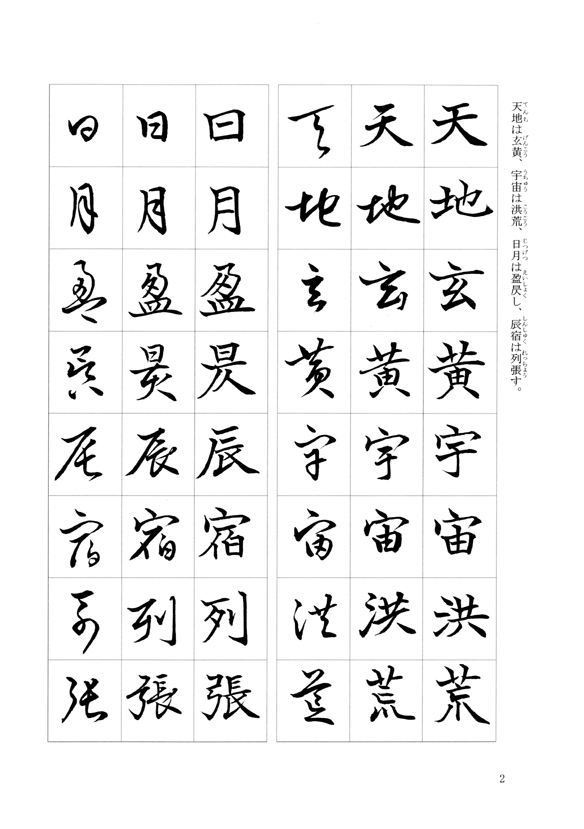 天地は玄黄、宇宙は洪荒、日月は盈昃し、辰宿は列張す。
天地玄黄宇宙洪荒
天地玄黄宇宙洪荒
天地玄黄宇宙洪荒
日月盈昃辰宿列張
日月盈昃辰宿列張
日月盈昃辰宿列張
2